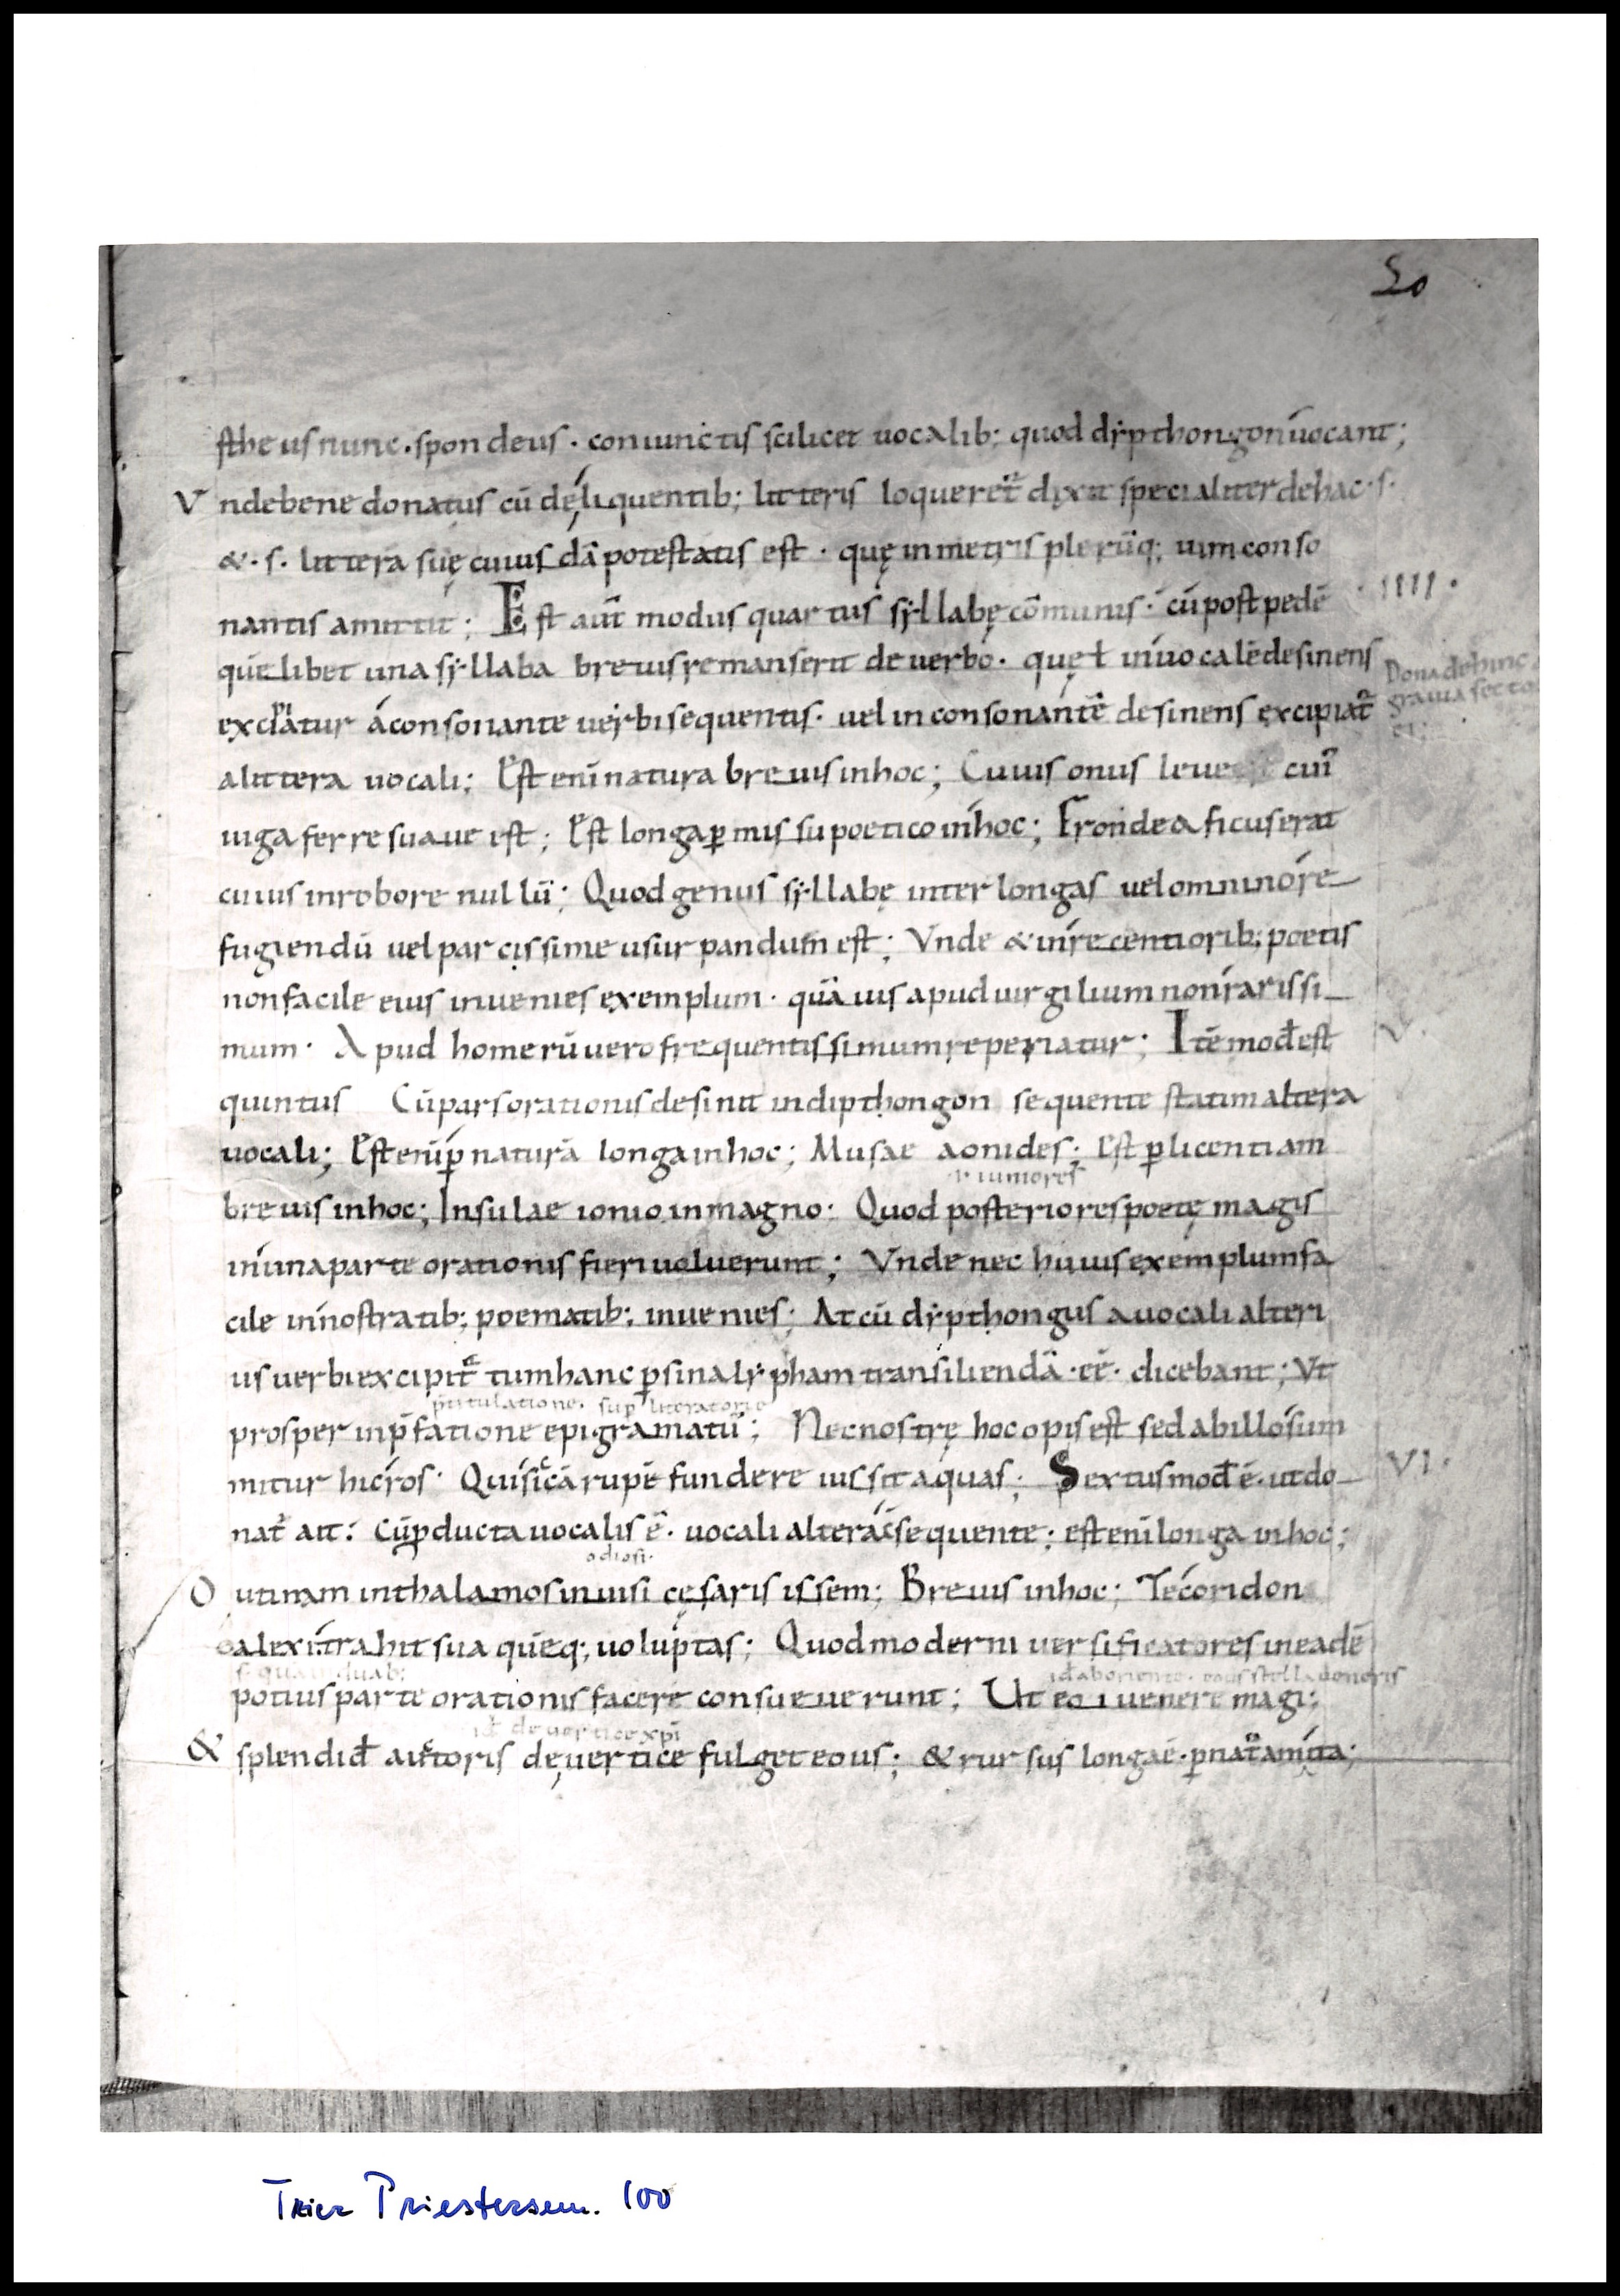 20
stheus nunc · spondeus · coniunctis scilicet uocalib; quod diỳpthongon uocant;
Vnde bene donatus cū dęliquentib; litteris loqueret̄ dixit specialiter de hac · s ·
& · s · littera suę cuiusdā potestatis est · quę in metris plerūq; uim conso
nantis amittit; Est aūt modus quartus sẏllabę cōmunis · cū post pedē · IIII ·
quēlibet una sẏllaba breuis remanserit de uerbo · quę ł in uocalē desinens
excipiatur a consonante uerbi sequentis · uel in consonantē desinens excipiat̄
a littera uocali; Est eni natura breuis in hoc; Cuius onus leue cui
iuga ferre suaue est; Est longa p̄missu poetico in hoc; Fronde & ficus erat
cuius in robore nullū; Quod genus sẏllabę inter longas uel omnino re
fugiendū uel parcissime usurpandum est; Vnde & in recentiorib; poetis
non facile eius inuenies exemplum · quāuis apud uirgilium non rarissi
mum · Apud homerū uero frequentissimum reperiatur; Itē mod̄ est V ·
quintus Cū pars orationis desinit in dipthongon sequente statim altera
uocali; Est eni p̄ naturā longa in hoc; Musae aonides; Est p̄ licentiam
iuniores
breuis in hoc; Insulae ionio in magno · Quod posteriores poetę magis
in una parte orationis fieri uoluerunt; Vnde nec huius exemplum fa
cile in nostratib; poematib; inuenies; At cū dẏpthongus a uocali alteri
us uerbi excipit̄ tum hanc p̄ sinalẏpham transiliendā · eē · dicebant; Vt
prosper in p̄fatione epigramatū; Nec nostrę hoc opis est sed ab illo sum
mitur hic ros · Qui siccā rupē fundere iussit aquas; Sextus mod̄ ē · ut do VI ·
nat̄ ait: Cū p̄ducta uocalis ē · uocali altera c̄sequente; est eni longa in hoc;
odiosi ·
O utinam in thalamos inuisi cęsaris issem; Breuis in hoc; Te coridon
o alexi trahit sua quēq; uoluptas; Quod moderni uersificatores in eadē
potius parte orationis facere consueuerunt; Ut eoi uenere magi;
id̄ de uertice xp̄i
& splendid̄ auctoris dę uertice fulget eous; & rursus longa ē · p̄ nat̄am ita;
Trier Priestersem. 100